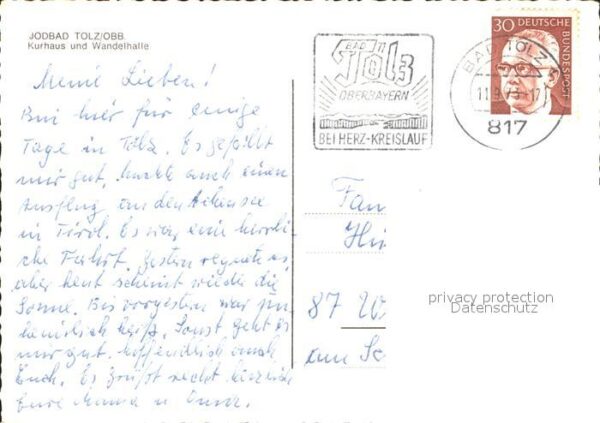 JODBAD TÖLZ/OBB.
Kurhaus und Wandelhalle
Meine Lieben!
Bin hier für einige
Tage in Tölz. Es gefällt
mir gut, machte auch einen
Ausflug an den Achensee
in Tirol. Es war eine herrli-
che Fahrt. Gestern regnete es,
aber heut scheint wieder die
Sonne. Bis vorgestern war
heiß. Sonst geht es
mir gut. Hoffentlich auch
Euch. Es grüßt recht herzlich
Eure Mama u.
BAD
Tölz
OBERBAYERN
BEI HERZ-KREISLAUF
BAD TÖLZ 1
11.9.73-17
817
30 DEUTSCHE
BUNDESPOST
Fam
87
am
privacy protection
Datenschutz